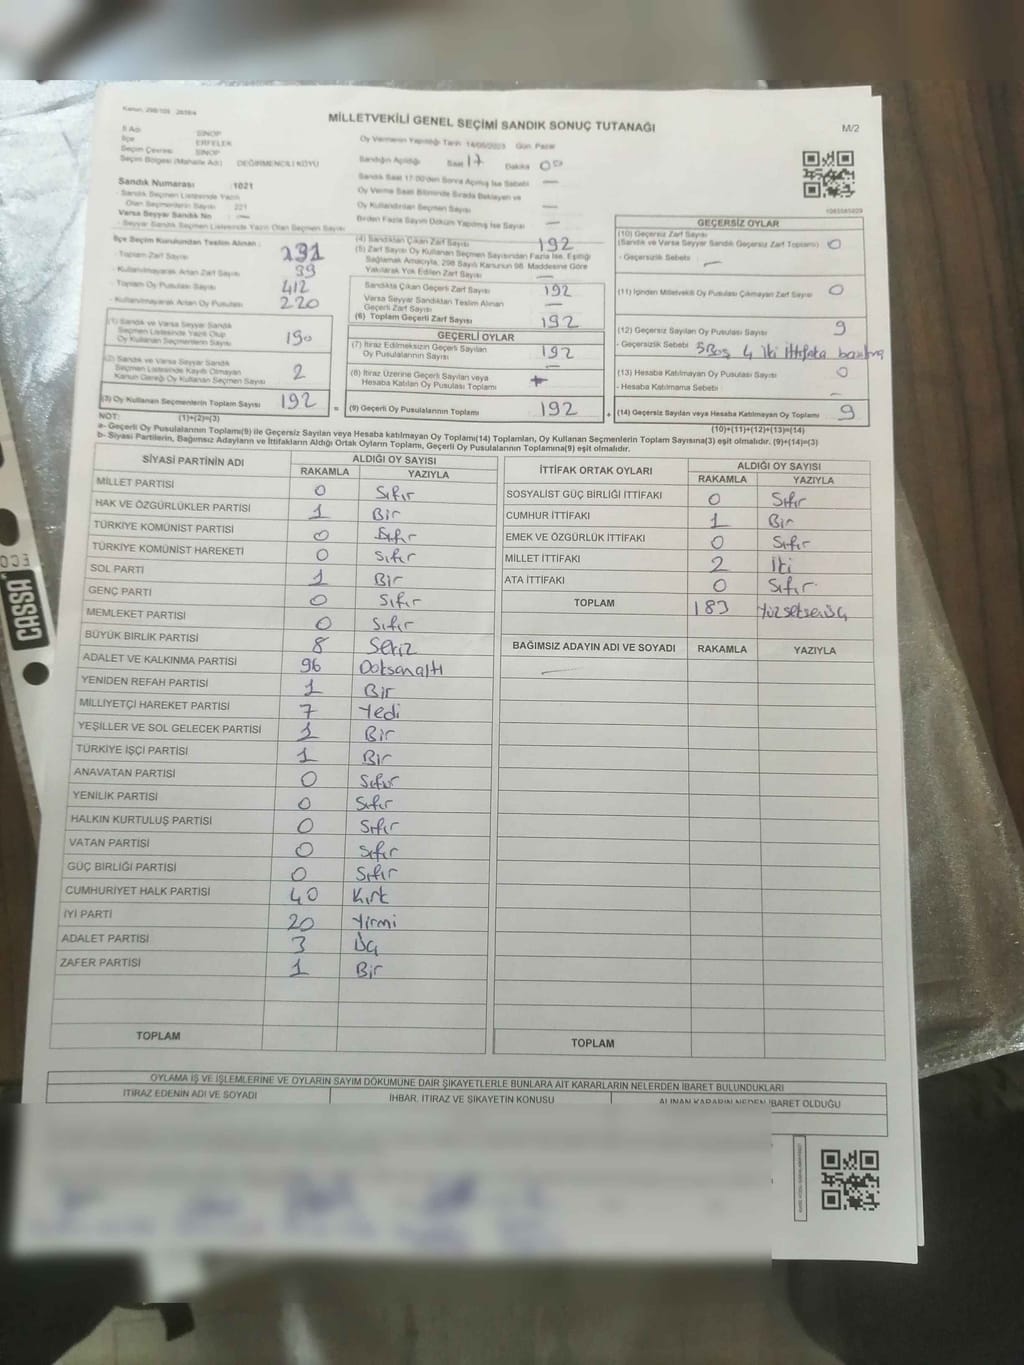 Kanun: 298/105
MİLLETVEKİLİ GENEL SEÇİMİ SANDIK SONUÇ TUTANAĞI
M/2
İl Adı SİNOP
İlçe ERFELEK
Seçim Çevresi SİNOP
Seçim Bölgesi (Mahalle Adı) DEĞİRMENCİLİ KÖYÜ
Oy Vermenin Yapıldığı Tarih 14/05/2023 Gün Pazar
Sandığın Açıldığı Saat 17 Dakika 00
Sandık Saat 17:00'den Sonra Açılmış İse Sebebi —
Oy Verme Saat Bitiminde Sırada Bekleyen ve
Oy Kullandırılan Seçmen Sayısı —
Birden Fazla Sayım Döküm Yapılmış İse Sayısı —
Sandık Numarası : 1021
- Sandık Seçmen Listesinde Yazılı
Olan Seçmenlerin Sayısı 221
Varsa Seyyar Sandık No : —
- Seyyar Sandık Seçmen Listesinde Yazılı Olan Seçmen Sayısı
İlçe Seçim Kurulundan Teslim Alınan :
- Toplam Zarf Sayısı 291
- Kullanılmayarak Artan Zarf Sayısı 99
- Toplam Oy Pusulası Sayısı 412
- Kullanılmayarak Artan Oy Pusulası 220
(1) Sandık ve Varsa Seyyar Sandık
Seçmen Listesinde Yazılı Olup
Oy Kullanan Seçmenlerin Sayısı 190
(2) Sandık ve Varsa Seyyar Sandık
Seçmen Listesinde Kayıtlı Olmayan
Kanun Gereği Oy Kullanan Seçmen Sayısı 2
(3) Oy Kullanan Seçmenlerin Toplam Sayısı 192
(4) Sandıktan Çıkan Zarf Sayısı 192
(5) Zarf Sayısı Oy Kullanan Seçmen Sayısından Fazla İse, Eşitliği
Sağlamak Amacıyla, 298 Sayılı Kanunun 98. Maddesine Göre
Yakılarak Yok Edilen Zarf Sayısı —
Sandıkta Çıkan Geçerli Zarf Sayısı 192
Varsa Seyyar Sandıktan Teslim Alınan
Geçerli Zarf Sayısı —
(6) Toplam Geçerli Zarf Sayısı 192
GEÇERLİ OYLAR
(7) İtiraz Edilmeksizin Geçerli Sayılan
Oy Pusulalarının Sayısı 192
(8) İtiraz Üzerine Geçerli Sayılan veya
Hesaba Katılan Oy Pusulası Toplamı
= (9) Geçerli Oy Pusulalarının Toplamı 192 +
1085585029
GEÇERSİZ OYLAR
(10) Geçersiz Zarf Sayısı
(Sandık ve Varsa Seyyar Sandık Geçersiz Zarf Toplamı) 0
- Geçersizlik Sebebi : —
(11) İçinden Milletvekili Oy Pusulası Çıkmayan Zarf Sayısı 0
(12) Geçersiz Sayılan Oy Pusulası Sayısı 9
- Geçersizlik Sebebi 5 Boş 4 iki ittifaka basılmış
(13) Hesaba Katılmayan Oy Pusulası Sayısı 0
- Hesaba Katılmama Sebebi : —
(14) Geçersiz Sayılan veya Hesaba Katılmayan Oy Toplamı 9
NOT: (1)+(2)=(3)
(10)+(11)+(12)+(13)=(14)
a- Geçerli Oy Pusulalarının Toplamı(9) ile Geçersiz Sayılan veya Hesaba katılmayan Oy Toplamı(14) Toplamları, Oy Kullanan Seçmenlerin Toplam Sayısına(3) eşit olmalıdır. (9)+(14)=(3)
b- Siyasi Partilerin, Bağımsız Adayların ve İttifakların Aldığı Ortak Oyların Toplamı, Geçerli Oy Pusulalarının Toplamına(9) eşit olmalıdır.
SİYASİ PARTİNİN ADI ALDIĞI OY SAYISI
RAKAMLA YAZIYLA
MİLLET PARTİSİ 0 Sıfır
HAK VE ÖZGÜRLÜKLER PARTİSİ 1 Bir
TÜRKİYE KOMÜNİST PARTİSİ 0 Sıfır
TÜRKİYE KOMÜNİST HAREKETİ 0 Sıfır
SOL PARTİ 1 Bir
GENÇ PARTİ 0 Sıfır
MEMLEKET PARTİSİ 0 Sıfır
BÜYÜK BİRLİK PARTİSİ 8 Sekiz
ADALET VE KALKINMA PARTİSİ 96 Doksanaltı
YENİDEN REFAH PARTİSİ 1 Bir
MİLLİYETÇİ HAREKET PARTİSİ 7 Yedi
YEŞİLLER VE SOL GELECEK PARTİSİ 1 Bir
TÜRKİYE İŞÇİ PARTİSİ 1 Bir
ANAVATAN PARTİSİ 0 Sıfır
YENİLİK PARTİSİ 0 Sıfır
HALKIN KURTULUŞ PARTİSİ 0 Sıfır
VATAN PARTİSİ 0 Sıfır
GÜÇ BİRLİĞİ PARTİSİ 0 Sıfır
CUMHURİYET HALK PARTİSİ 40 Kırk
İYİ PARTİ 20 Yirmi
ADALET PARTİSİ 3 Üç
ZAFER PARTİSİ 1 Bir
TOPLAM
İTTİFAK ORTAK OYLARI ALDIĞI OY SAYISI
RAKAMLA YAZIYLA
SOSYALİST GÜÇ BİRLİĞİ İTTİFAKI 0 Sıfır
CUMHUR İTTİFAKI 1 Bir
EMEK VE ÖZGÜRLÜK İTTİFAKI 0 Sıfır
MİLLET İTTİFAKI 2 İki
ATA İTTİFAKI 0 Sıfır
TOPLAM 183 Yüzseksenüç
BAĞIMSIZ ADAYIN ADI VE SOYADI RAKAMLA YAZIYLA
TOPLAM
OYLAMA İŞ VE İŞLEMLERİNE VE OYLARIN SAYIM DÖKÜMÜNE DAİR ŞİKAYETLERLE BUNLARA AİT KARARLARIN NELERDEN İBARET BULUNDUKLARI
İTİRAZ EDENİN ADI VE SOYADI İHBAR, İTİRAZ VE ŞİKAYETİN KONUSU ALINAN KARARIN NEDEN İBARET OLDUĞU
CASSA